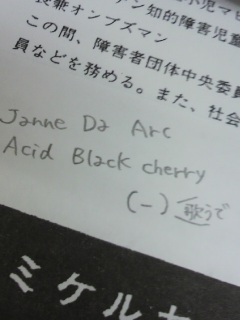 小児マヒ
アン知的障害児童
長兼オンブズマン
この間、障害者団体中央委員
員などを務める。また、社会
Janne Da Arc
Acid Black cherry
(−) 歌うで
ミケル